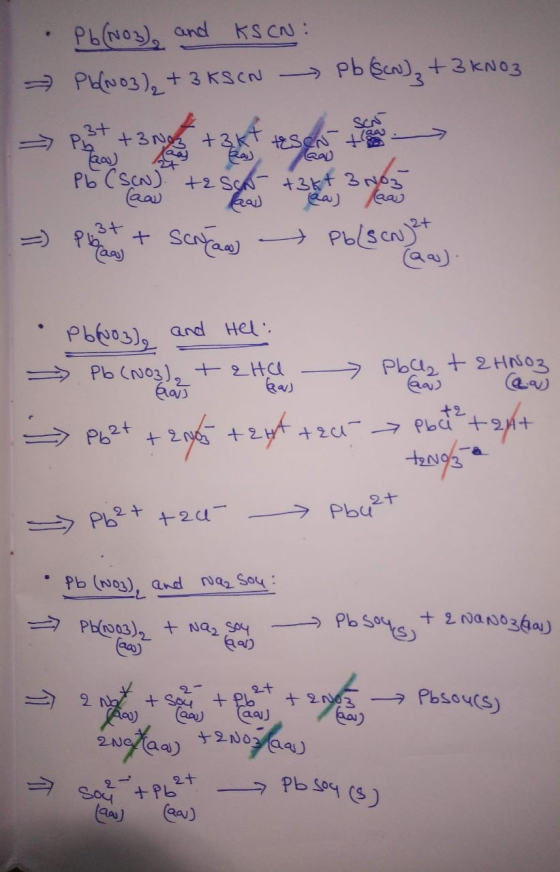 • Pb(NO3)2 and KSCN:
⇒ Pb(NO3)2 + 3KSCN → Pb(SCN)3 + 3KNO3
⇒ Pb3+(aq) + 3NO3-(aq) + 3K+(aq) + 2SCN-(aq) + SCN-(aq) →
Pb(SCN)2+(aq) + 2SCN-(aq) + 3K+(aq) 3NO3-(aq)
⇒ Pb3+(aq) + SCN-(aq) → Pb(SCN)2+(aq).
• Pb(NO3)2 and HCl:
⇒ Pb(NO3)2(aq) + 2HCl(aq) → PbCl2(aq) + 2HNO3(aq)
⇒ Pb2+ + 2NO3- + 2H+ + 2Cl- → PbCl+2 + 2H+
+2NO3-
⇒ Pb2+ + 2Cl- → PbCl2+
• Pb(NO3)2 and Na2SO4:
⇒ Pb(NO3)2(aq) + Na2SO4(aq) → PbSO4(s) + 2NaNO3(aq)
⇒ 2Na+(aq) + SO42-(aq) + Pb2+(aq) + 2NO3-(aq) → PbSO4(s)
2Na+(aq) + 2NO3-(aq)
⇒ SO42-(aq) + Pb2+(aq) → PbSO4(s)